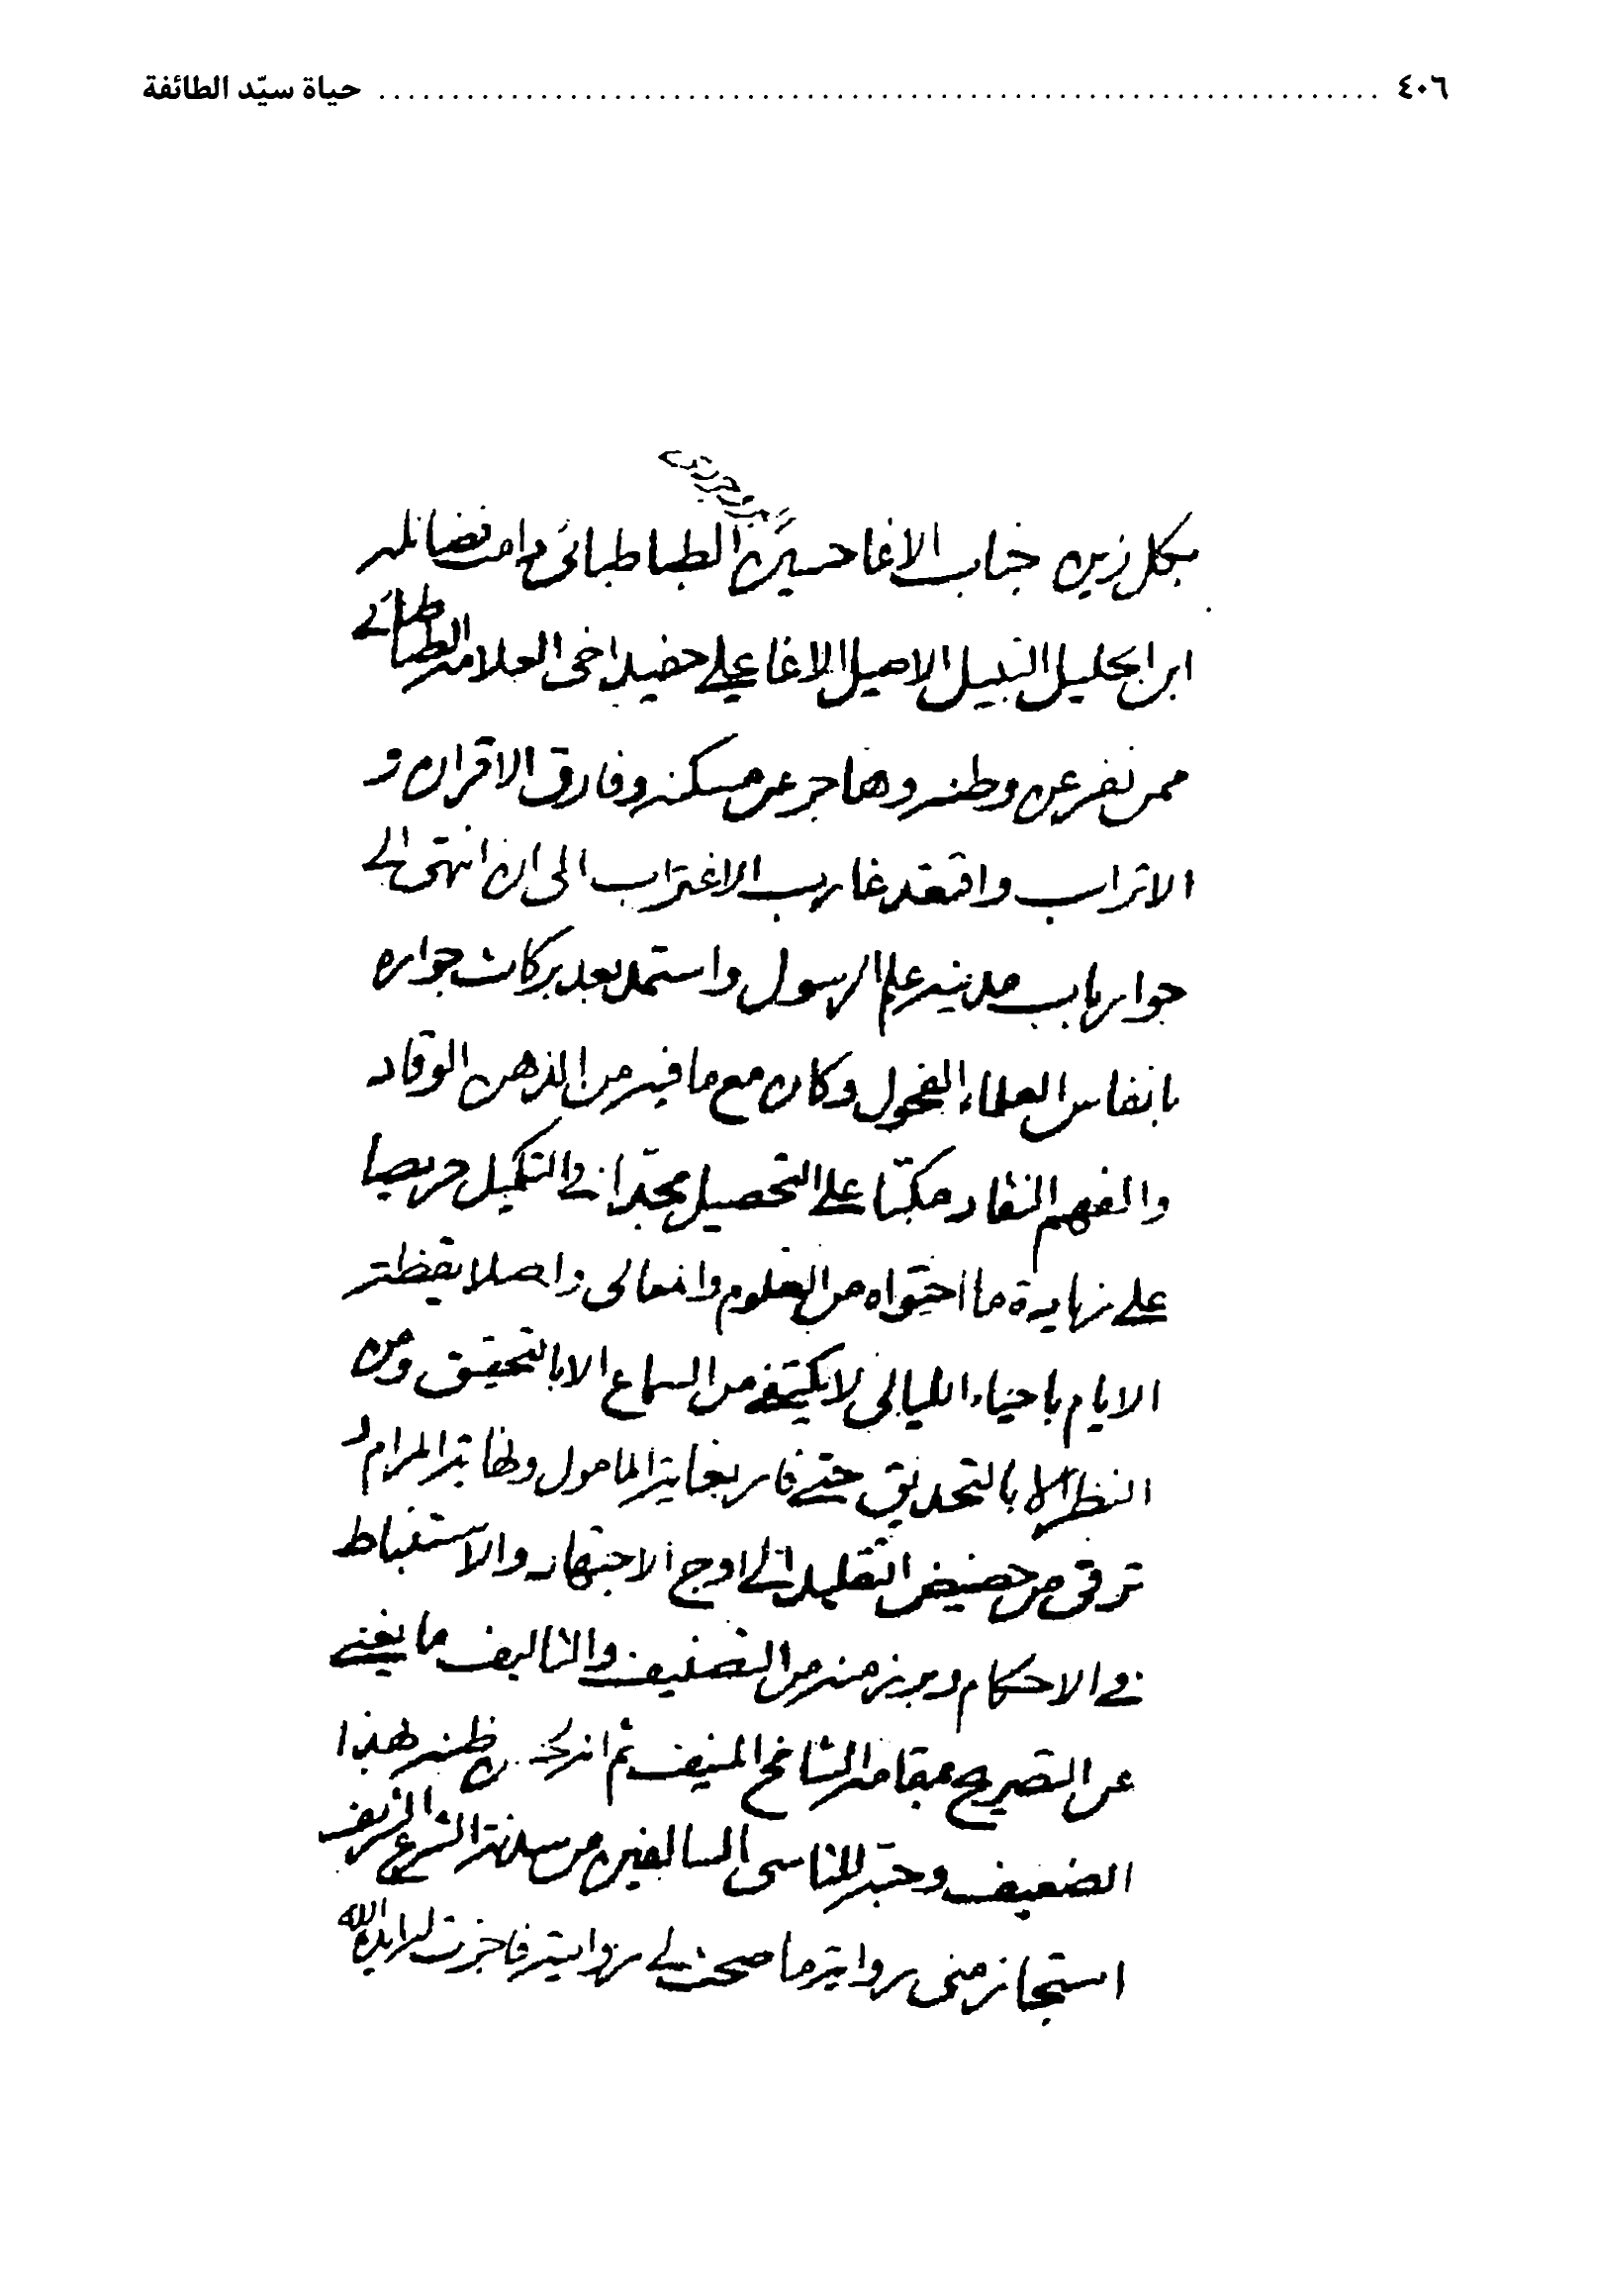 ٤٠٦ ........ حياة سيّد الطائفة
بكل زين جناب الاغا حسين الطباطبائي دامت فضائله
ابن الجليل النبيل الاصيل الاغا علي حفيد اخي العلامه الطباطبائي
ممن نفر عن وطنه وهاجر عن مسكنه وفارق الاقران و
الاتراب واقتعد غارب الاغتراب الى ان انتهى الى
جوار باب مدينه علم الرسول واستمد بعد بركات جواره
بانفاس العلماء الفحول وكان مع ما فيه من الذهن الوقاد
والفهم النقاد مكبّا على التحصيل مجدّا في التكميل حريصا
على زيادة ما احتواه من العلوم والمعالى واصلا يقظته
الايام باحياء الليالى لا يكتفي من السماع الا بالتحقيق ومن
النظر الا بالتحديق حتى فاز بغاية المامول ونهاية المرام و
ترقى من حضيض التقليد الى اوج الاجتهاد والاستنباط
في الاحكام وبرز منه من التصنيف والتاليف ما يغني
عن التصريح بمقامه الشامخ المنيف ثم انه لحسن ظنه بهذا
الضعيف وحبّه للتاسى بالسالفين من سدنة الشرع الشريف
استجاز منى رواية ما صحت لي روايته فاجزت له ايده الله